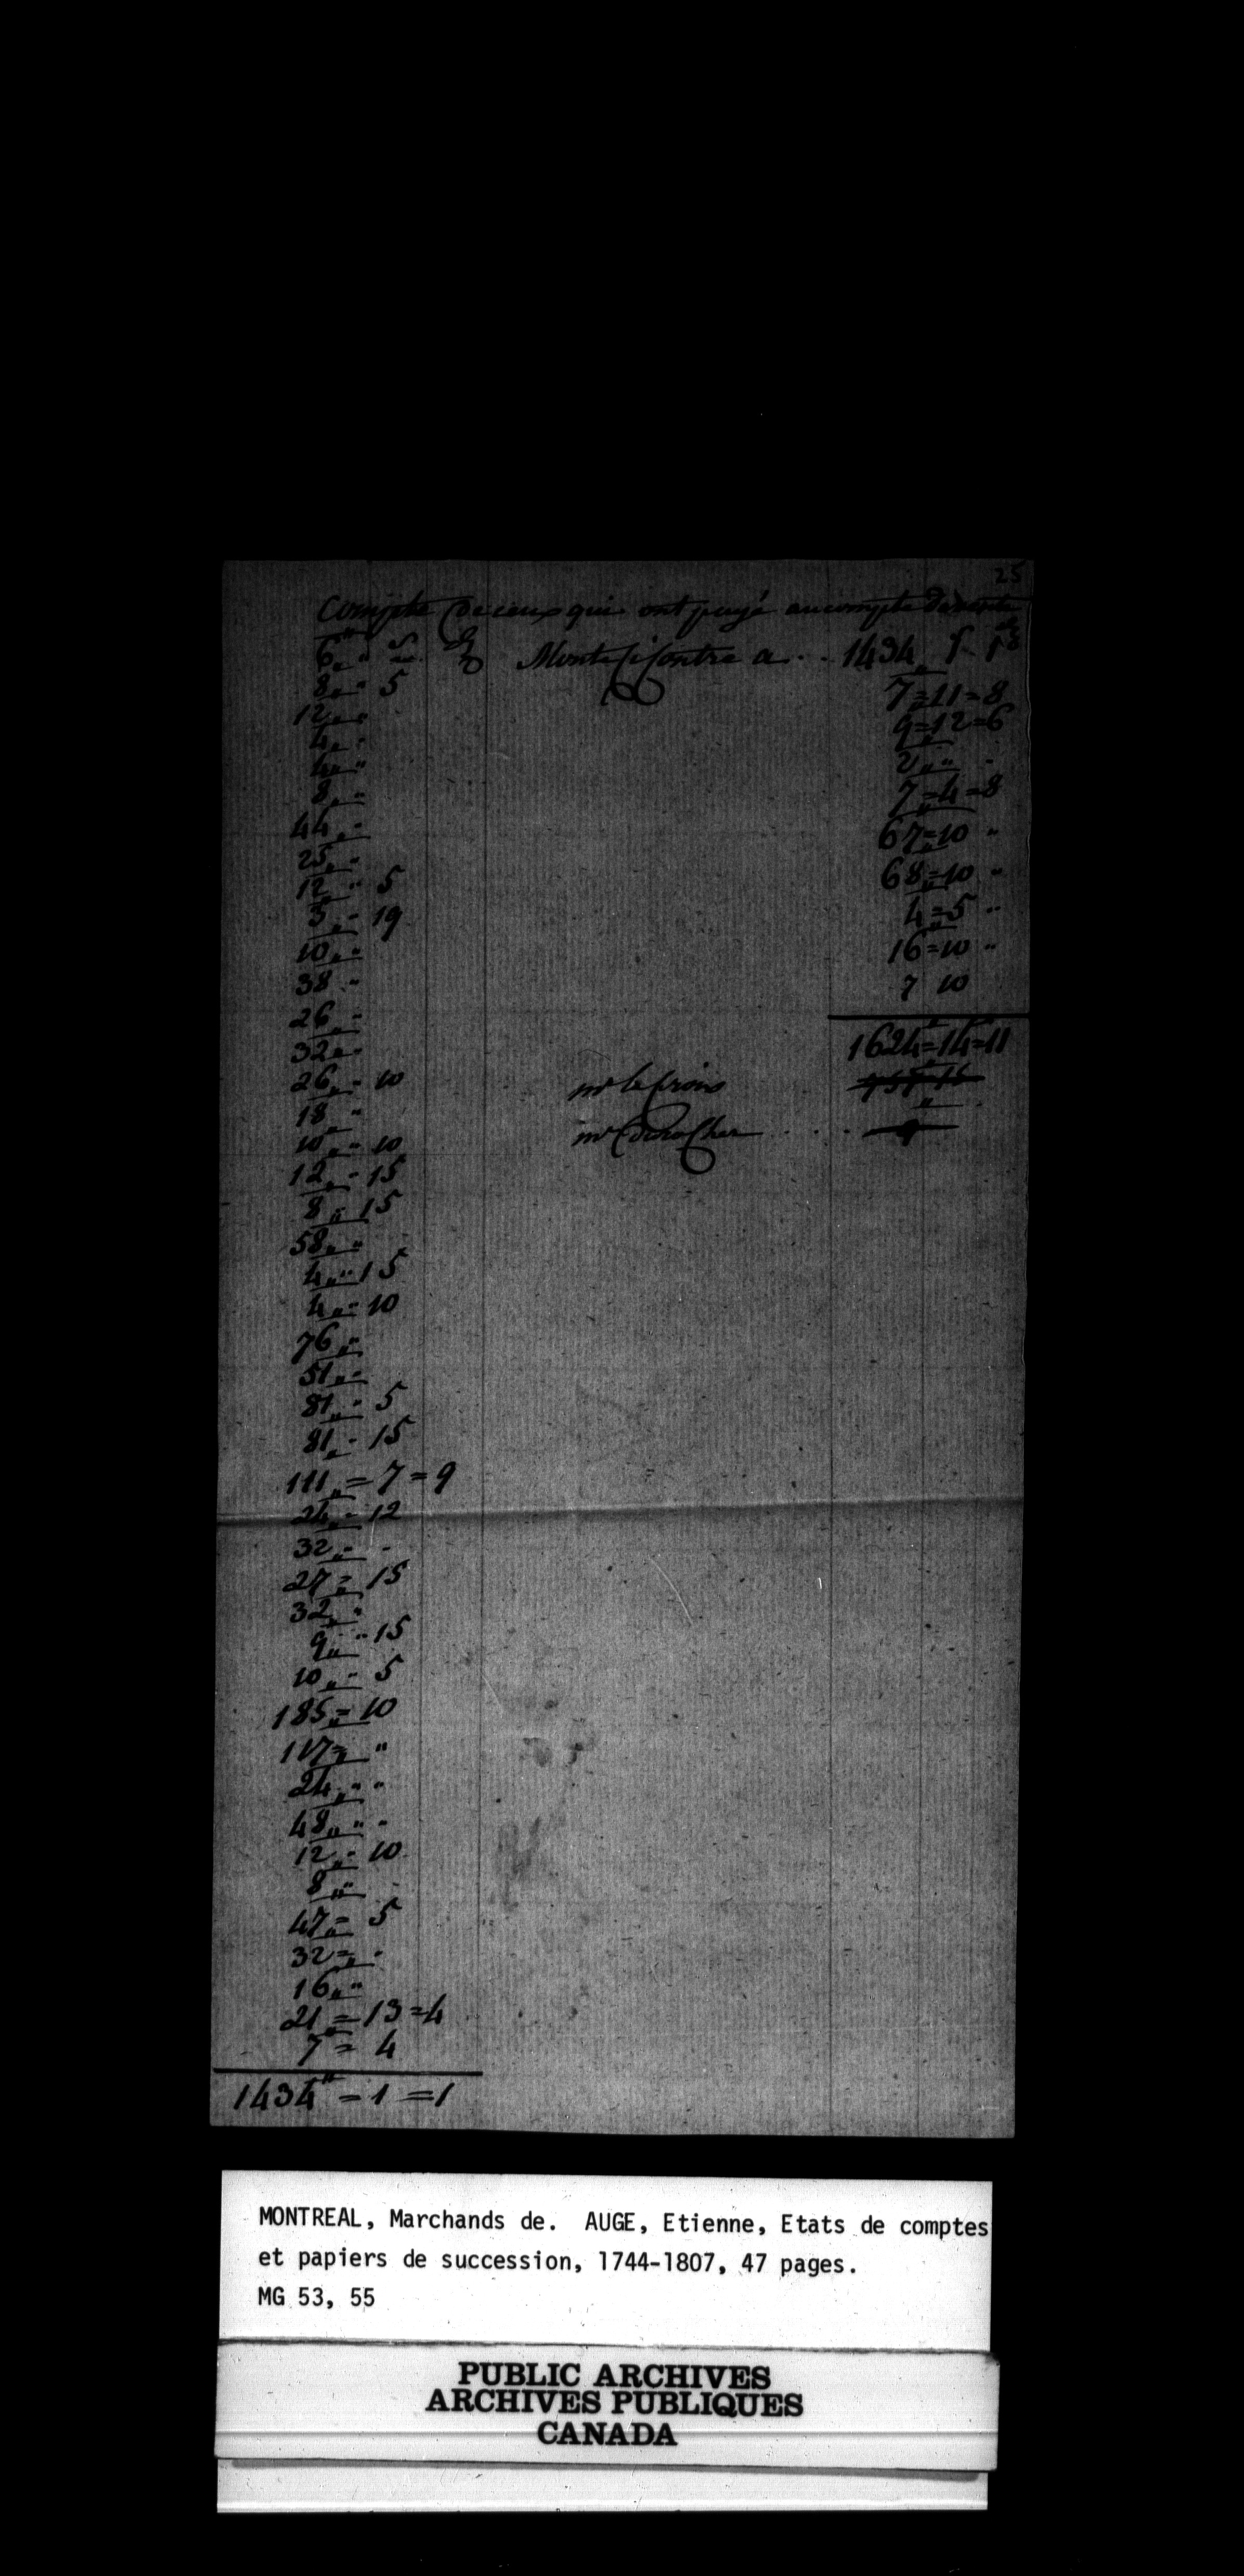 25
Compte de ceux qui ont payé au compte
6 " 5
8 " 5
12 " "
4 " "
4 " "
8 " "
44 " "
25 " "
12 " 5
3 " 19
10 " "
38 "
26 " "
32 " "
26 " 10
18 " "
10 " 10
12 " 15
8 " 15
58 " "
4 " 15
4 " 10
76 " "
51 " "
81 " 5
81 " 15
111 = 7 = 9
24 " 12
32 " "
27 = 15
32 " "
9 " 15
10 " 5
185 = 10
117 = "
24 " "
48 " "
12 " 10
8 " "
47 = 5
32 = "
16 " "
21 = 13 = 4
7 = 4
1434 = 1 = 1
Monte Ci Contre a . . 1434
7 = 11 = 8
9 = 12 = 6
2 " "
7 = 4 = 8
67 = 10 "
68 = 10 "
4 = 5 "
16 = 10 "
7 10
1624 = 14 = 11
mr
mr durocher . . . .
MONTREAL, Marchands de. AUGE, Etienne, Etats de comptes
et papiers de succession, 1744-1807, 47 pages.
MG 53, 55
PUBLIC ARCHIVES
ARCHIVES PUBLIQUES
CANADA